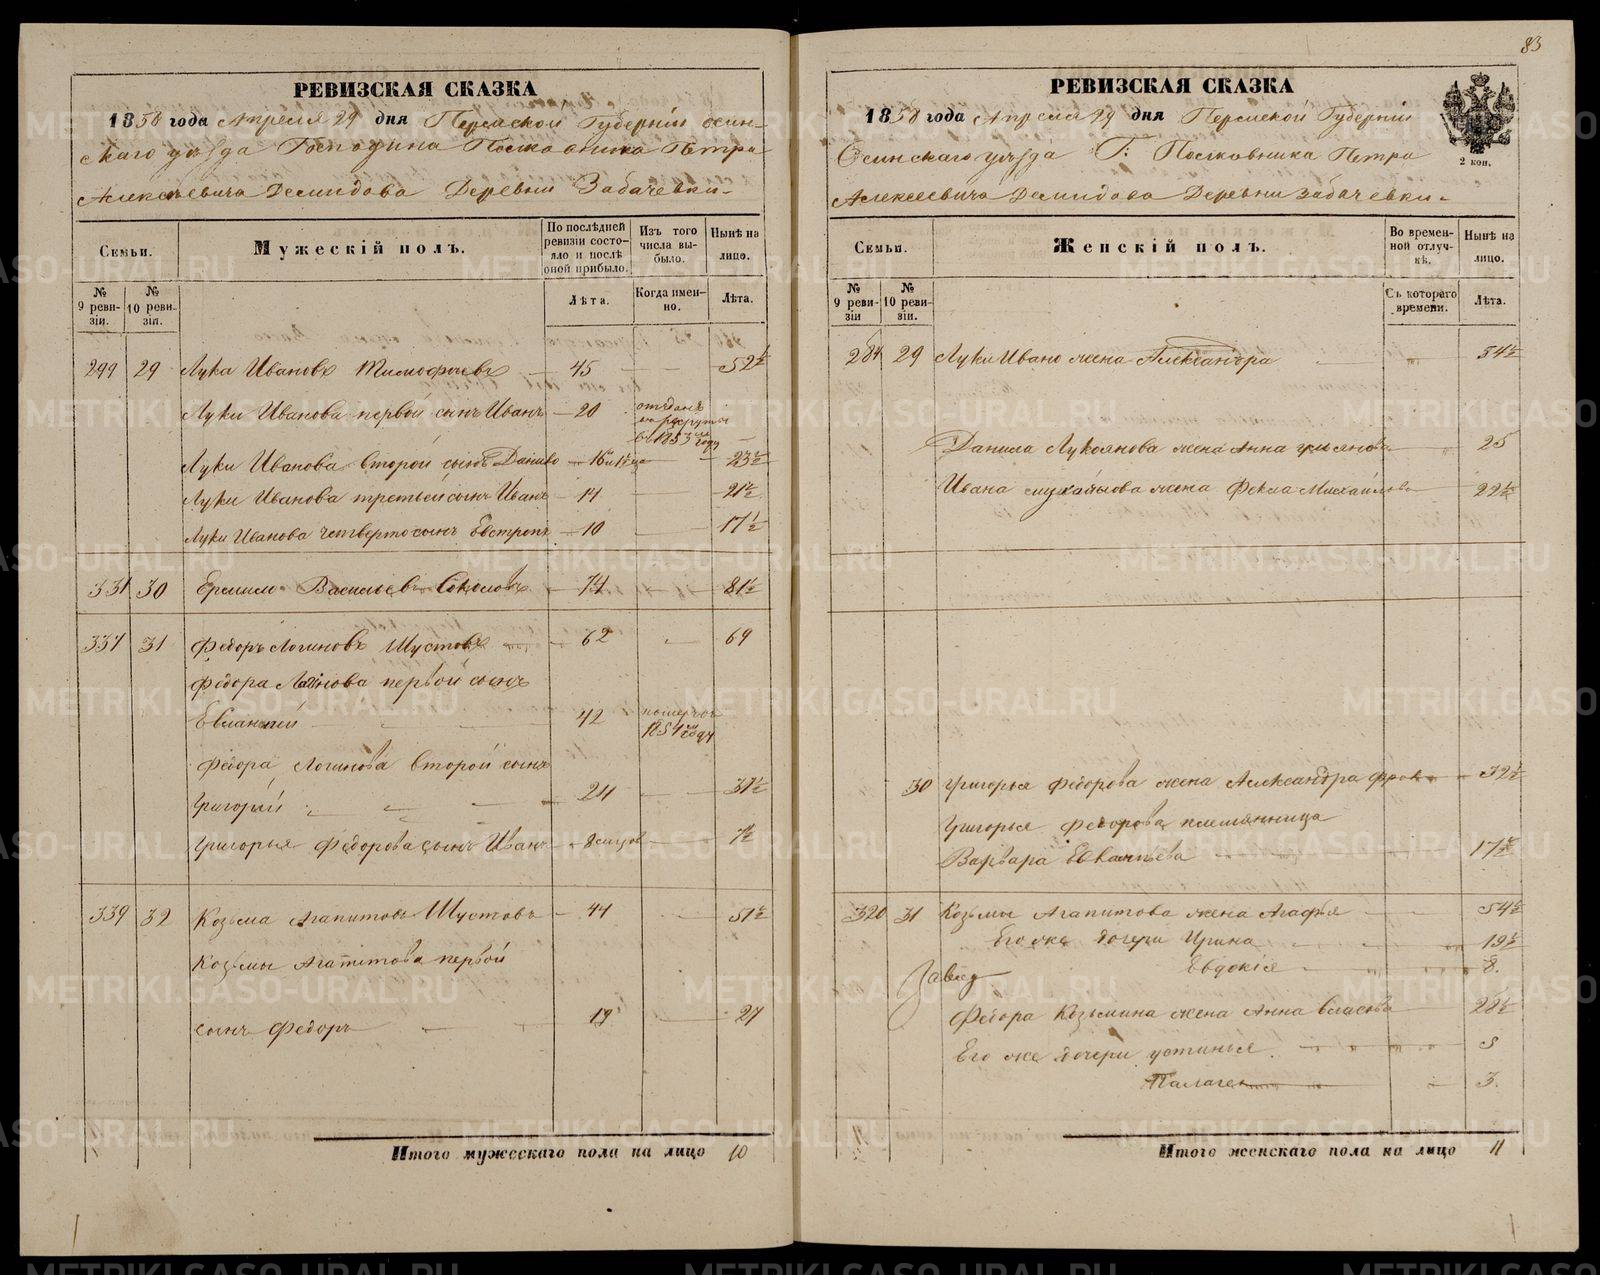 83
РЕВИЗСКАЯ СКАЗКА
1858 года Апреля 29 дня Пермской Губерніи Осин-
скаго уѣзда Господина Полковника Петра
Алексѣевича Демидова Деревни Забачевки
Семьи.
Мужескій полъ.
По послѣдней ревизіи состояло и послѣ оной прибыло.
Изъ того числа выбыло.
Нынѣ на лицо.
№ 9 ревизіи.
№ 10 ревизіи.
Лѣта.
Когда именно.
Лѣта.
299 29 Лука Ивановъ Тимофѣевъ 45 52½
Луки Иванова первой сынъ Иванъ 20 отданъ въ рекруты въ 1853 году
Луки Иванова второй сынъ Данило 16 23½
Луки Иванова третьей сынъ Иванъ 14 21½
Луки Иванова четверто сынъ Евстропъ 10 17½
331 30 Ермило Васильевъ Соколовъ 74 81½
337 31 Федоръ Логиновъ Шустовъ 62 69
Федора Логинова первой сынъ
Евлампий 42 померъ въ 1854 году
Федора Логинова второй сынъ
Григорий 24 31½
Григорья Федорова сынъ Иванъ 7½
339 32 Козьма Агапитовъ Шустовъ 44 51½
Козьмы Агапитова первой
сынъ Федоръ 19 27
Итого мужескаго пола на лицо 10
РЕВИЗСКАЯ СКАЗКА
1858 года Апреля 29 дня Пермской Губерніи
Осинскаго уѣзда Г: Полковника Петра
Алексеевича Демидова Деревни Забачевки
2 коп.
Семьи.
Женскій полъ.
Во временной отлучкѣ.
Нынѣ на лицо.
№ 9 ревизіи
№ 10 ревизіи.
Съ котораго времени.
Лѣта.
284 29 Луки Ивано жена Александра 54½
Данила Лукоянова жена Анна 25
Ивана жена Фекла Михайлова 22½
30 Григорья Федорова жена Александра 32½
Григорья Федорова племянница
Варвара Евлампьева 17½
320 31 Козьмы Агапитова жена Агафья 54½
Его же дочери Ирина 19½
Евдокія 8.
Федора Козьмина жена Анна Власова 28½
Его же дочери устинья
Палагея 3.
Итого женскаго пола на лицо 11
METRIKI.GASO-URAL.RU